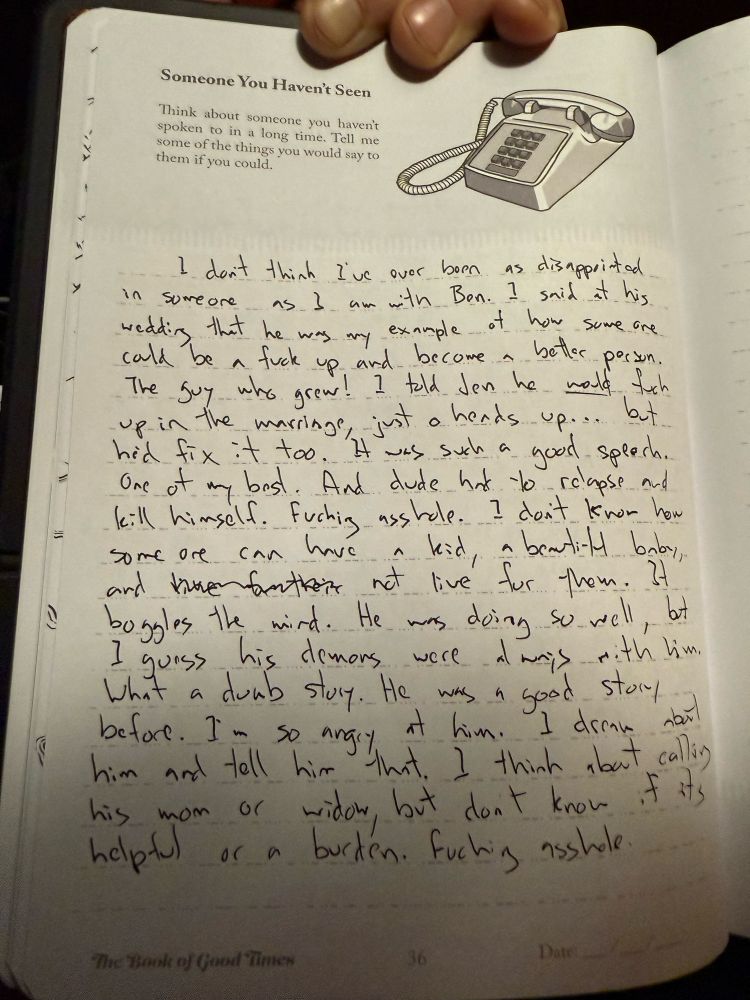 Someone You Haven't Seen
Think about someone you haven't
spoken to in a long time. Tell me
some of the things you would say to
them if you could.
I don't think I've ever been as disappointed
in someone as I am with Ben. I said at his
wedding that he was my example of how some one
could be a fuck up and become a better person.
The guy who grew! I told Jen he would fuck
up in the marriage, just a heads up... but
he'd fix it too. It was such a good speech.
One of my best. And dude had to relapse and
kill himself. Fucking asshole. I don't know how
some one can have a kid, a beautiful baby,
and not live for them. It
boggles the mind. He was doing so well, but
I guess his demons were always with him.
What a dumb story. He was a good story
before. I'm so angry at him. I dream about
him and tell him that. I think about calling
his mom or widow, but don't know if its
helpful or a burden. Fucking asshole.
The Book of Good Times
36
Date: __/__/__